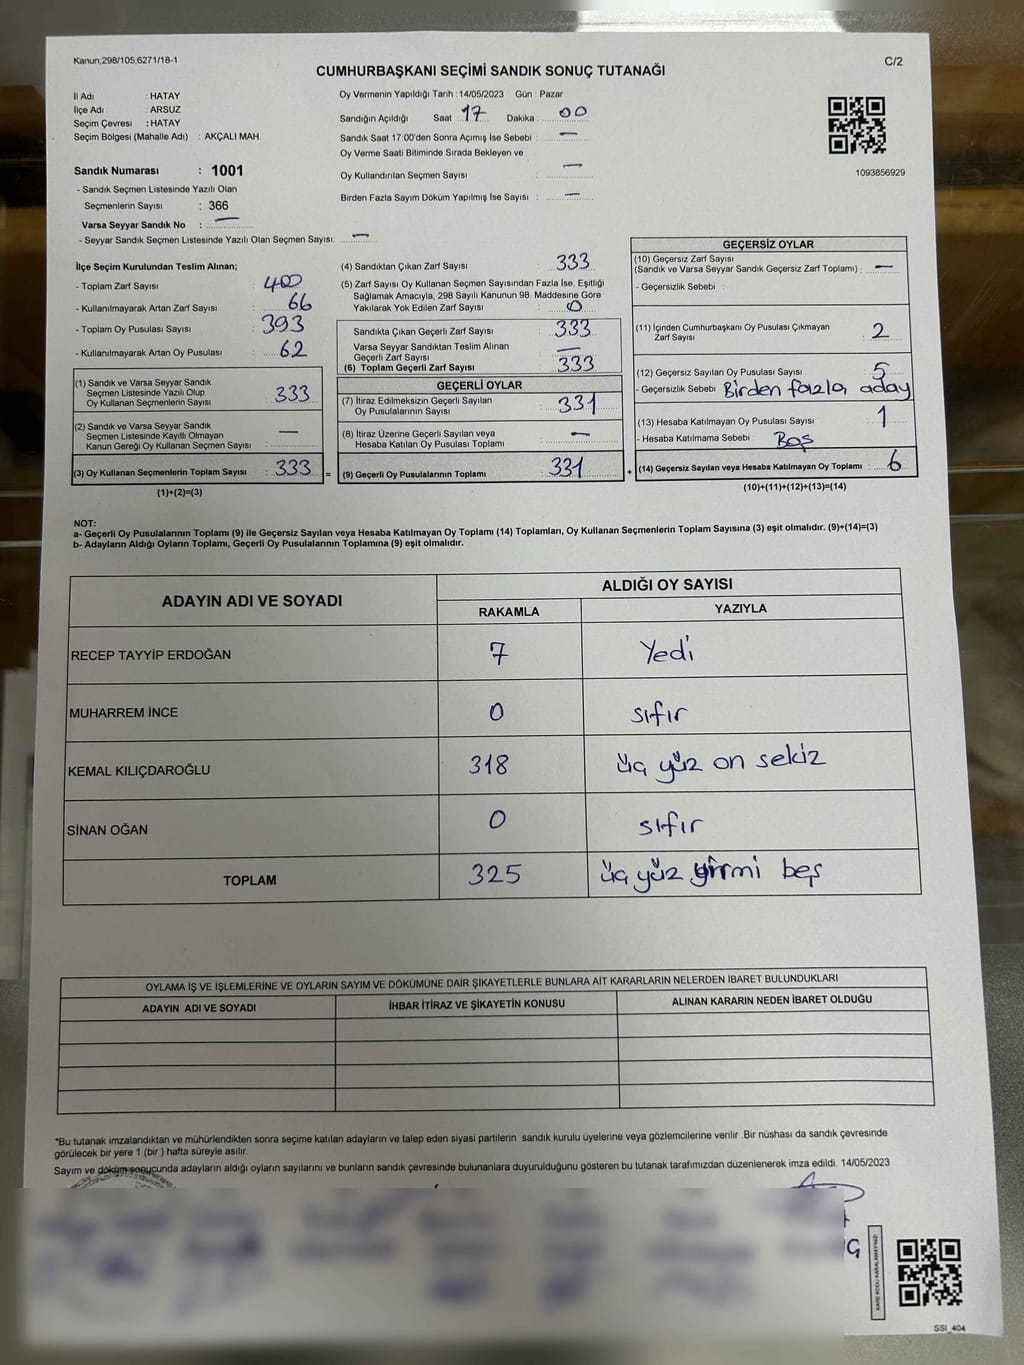 Kanun;298/105;6271/18-1
C/2
CUMHURBAŞKANI SEÇİMİ SANDIK SONUÇ TUTANAĞI
İl Adı : HATAY
İlçe Adı : ARSUZ
Seçim Çevresi : HATAY
Seçim Bölgesi (Mahalle Adı) : AKÇALI MAH.
Sandık Numarası : 1001
- Sandık Seçmen Listesinde Yazılı Olan
Seçmenlerin Sayısı : 366
Varsa Seyyar Sandık No : —
- Seyyar Sandık Seçmen Listesinde Yazılı Olan Seçmen Sayısı: —
Oy Vermenin Yapıldığı Tarih : 14/05/2023 Gün : Pazar
Sandığın Açıldığı Saat : 17 Dakika : 00
Sandık Saat 17:00'den Sonra Açımış İse Sebebi : —
Oy Verme Saati Bitiminde Sırada Bekleyen ve
Oy Kullandırılan Seçmen Sayısı : —
Birden Fazla Sayım Döküm Yapılmış İse Sayısı : —
1093856929
İlçe Seçim Kurulundan Teslim Alınan;
- Toplam Zarf Sayısı : 400
- Kullanılmayarak Artan Zarf Sayısı : 66
- Toplam Oy Pusulası Sayısı : 393
- Kullanılmayarak Artan Oy Pusulası : 62
(1) Sandık ve Varsa Seyyar Sandık
Seçmen Listesinde Yazılı Olup
Oy Kullanan Seçmenlerin Sayısı : 333
(2) Sandık ve Varsa Seyyar Sandık
Seçmen Listesinde Kayıtlı Olmayan
Kanun Gereği Oy Kullanan Seçmen Sayısı : —
(3) Oy Kullanan Seçmenlerin Toplam Sayısı : 333 =
(1)+(2)=(3)
(4) Sandıktan Çıkan Zarf Sayısı : 333
(5) Zarf Sayısı Oy Kullanan Seçmen Sayısından Fazla İse, Eşitliği
Sağlamak Amacıyla, 298 Sayılı Kanunun 98. Maddesine Göre
Yakılarak Yok Edilen Zarf Sayısı : 0
Sandıkta Çıkan Geçerli Zarf Sayısı : 333
Varsa Seyyar Sandıktan Teslim Alınan
Geçerli Zarf Sayısı : —
(6) Toplam Geçerli Zarf Sayısı : 333
GEÇERLİ OYLAR
(7) İtiraz Edilmeksizin Geçerli Sayılan
Oy Pusulalarının Sayısı : 331
(8) İtiraz Üzerine Geçerli Sayılan veya
Hesaba Katılan Oy Pusulası Toplamı : —
(9) Geçerli Oy Pusulalarının Toplamı : 331 +
GEÇERSİZ OYLAR
(10) Geçersiz Zarf Sayısı
(Sandık ve Varsa Seyyar Sandık Geçersiz Zarf Toplamı) : —
- Geçersizlik Sebebi :
(11) İçinden Cumhurbaşkanı Oy Pusulası Çıkmayan
Zarf Sayısı : 2
(12) Geçersiz Sayılan Oy Pusulası Sayısı : 5
- Geçersizlik Sebebi : Birden fazla aday
(13) Hesaba Katılmayan Oy Pusulası Sayısı : 1
- Hesaba Katılmama Sebebi : Boş
(14) Geçersiz Sayılan veya Hesaba Katılmayan Oy Toplamı : 6
(10)+(11)+(12)+(13)=(14)
NOT:
a- Geçerli Oy Pusulalarının Toplamı (9) ile Geçersiz Sayılan veya Hesaba Katılmayan Oy Toplamı (14) Toplamları, Oy Kullanan Seçmenlerin Toplam Sayısına (3) eşit olmalıdır. (9)+(14)=(3)
b- Adayların Aldığı Oyların Toplamı, Geçerli Oy Pusulalarının Toplamına (9) eşit olmalıdır.
ADAYIN ADI VE SOYADI
ALDIĞI OY SAYISI
RAKAMLA YAZIYLA
RECEP TAYYİP ERDOĞAN 7 Yedi
MUHARREM İNCE 0 sıfır
KEMAL KILIÇDAROĞLU 318 üç yüz on sekiz
SİNAN OĞAN 0 sıfır
TOPLAM 325 üç yüz yirmi beş
OYLAMA İŞ VE İŞLEMLERİNE VE OYLARIN SAYIM VE DÖKÜMÜNE DAİR ŞİKAYETLERLE BUNLARA AİT KARARLARIN NELERDEN İBARET BULUNDUKLARI
ADAYIN ADI VE SOYADI İHBAR İTİRAZ VE ŞİKAYETİN KONUSU ALINAN KARARIN NEDEN İBARET OLDUĞU
*Bu tutanak imzalandıktan ve mühürlendikten sonra seçime katılan adayların ve talep eden siyasi partilerin sandık kurulu üyelerine veya gözlemcilerine verilir .Bir nüshası da sandık çevresinde
görülecek bir yere 1 (bir ) hafta süreyle asılır.
Sayım ve döküm sonucunda adayların aldığı oyların sayılarını ve bunların sandık çevresinde bulunanlara duyurulduğunu gösteren bu tutanak tarafımızdan düzenlenerek imza edildi. 14/05/2023
KARE KODU KARALAMAYINIZ!
SSI_404